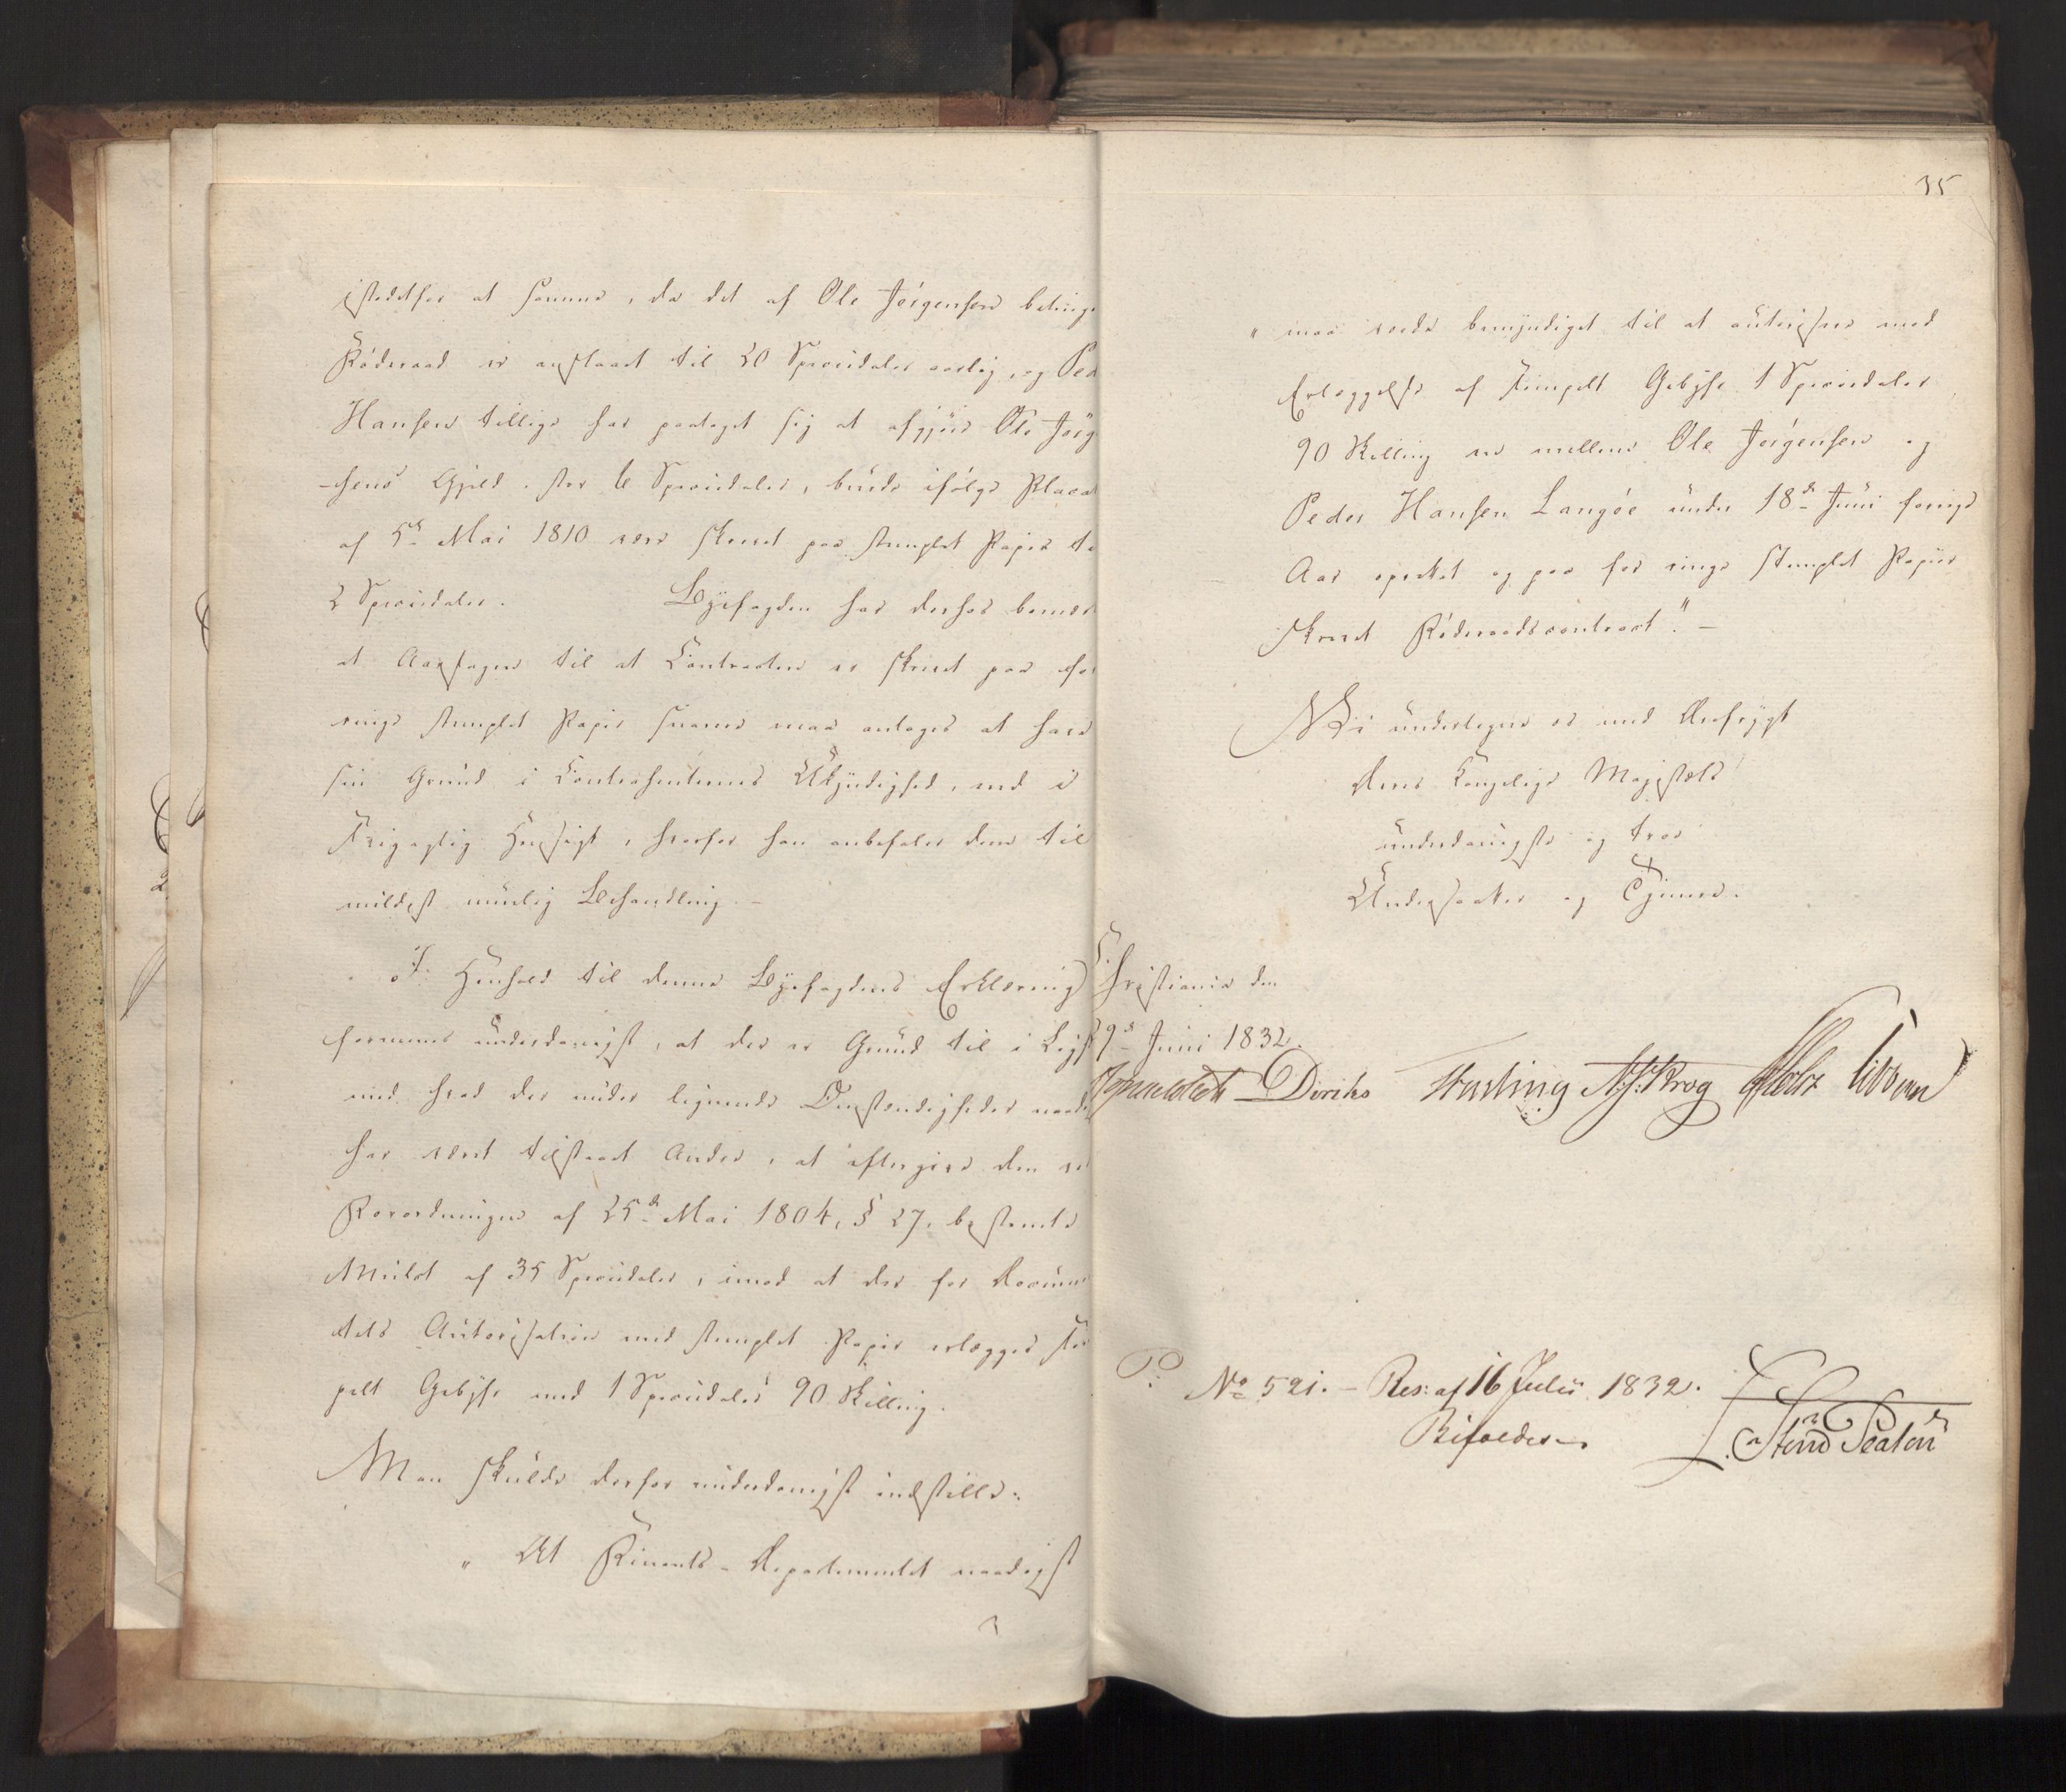 istedetfor at samme, da det af Ole Jörgensen beting
Föderaad er anslaaet til 20 Speciedaler aarlig, og Ped
Hansen tillige har paataget sig at afgjöre Ole Jörg
-sens Gjeld, stor 6 Speciedaler, burde ifölge Placat
af 5te Mai 1810 være skrevet paa stemplet Papir til
2 Speciedaler. Byefogden har derhos bemær
at Aarsagen til at Contracten er skrevet paa for
ringe stemplet Papir snarere maa antages at have
sin Grund i Contrahenternes Ukyndighed, end i
svigagtig Hensigt, hvorfor han anbefaler dem til
mildest muelig Behandling. —
I Henhold til denne Byefogdens Erklæring
formenes underdanigst, at der er Grund til i Lig
med hvad der under lignende Omstændigheder naad
har været tilstaaet Andre, at eftergive den ve
Forordningen af 25de Mai 1804, § 27, bestemte
Mulct af 35 Speciedaler, imod at der for Docume
tets Autorisation med stemplet Papir erlægges sim
pelt Gebyhr med 1 Speciedaler 90 Skilling.
Man skulde derfor underdanigst indstille:
"At Finants-Departementet naadigst
35
" maa vorde bemyndiget til at autorisere mod
Erlæggelse af simpelt Gebyhr 1 Speciedaler
90 Skilling en mellem Ole Jörgensen og
Peder Hansen Langöe under 18de Juni forrige
Aar oprettet og paa for ringe stemplet Papir
skrevet Föderaadscontract." —
Vi underlegne os med Ærefrygt
Deres Kongelige Majestæts
underdanigste og troe
Undersaatter og Tjenere.
Christiania den
9de Juni 1832.
Diriks Fasting N. J. Krog Holst Vibe
No 521. — Res: af 16 Julii 1832.
Bifaldes